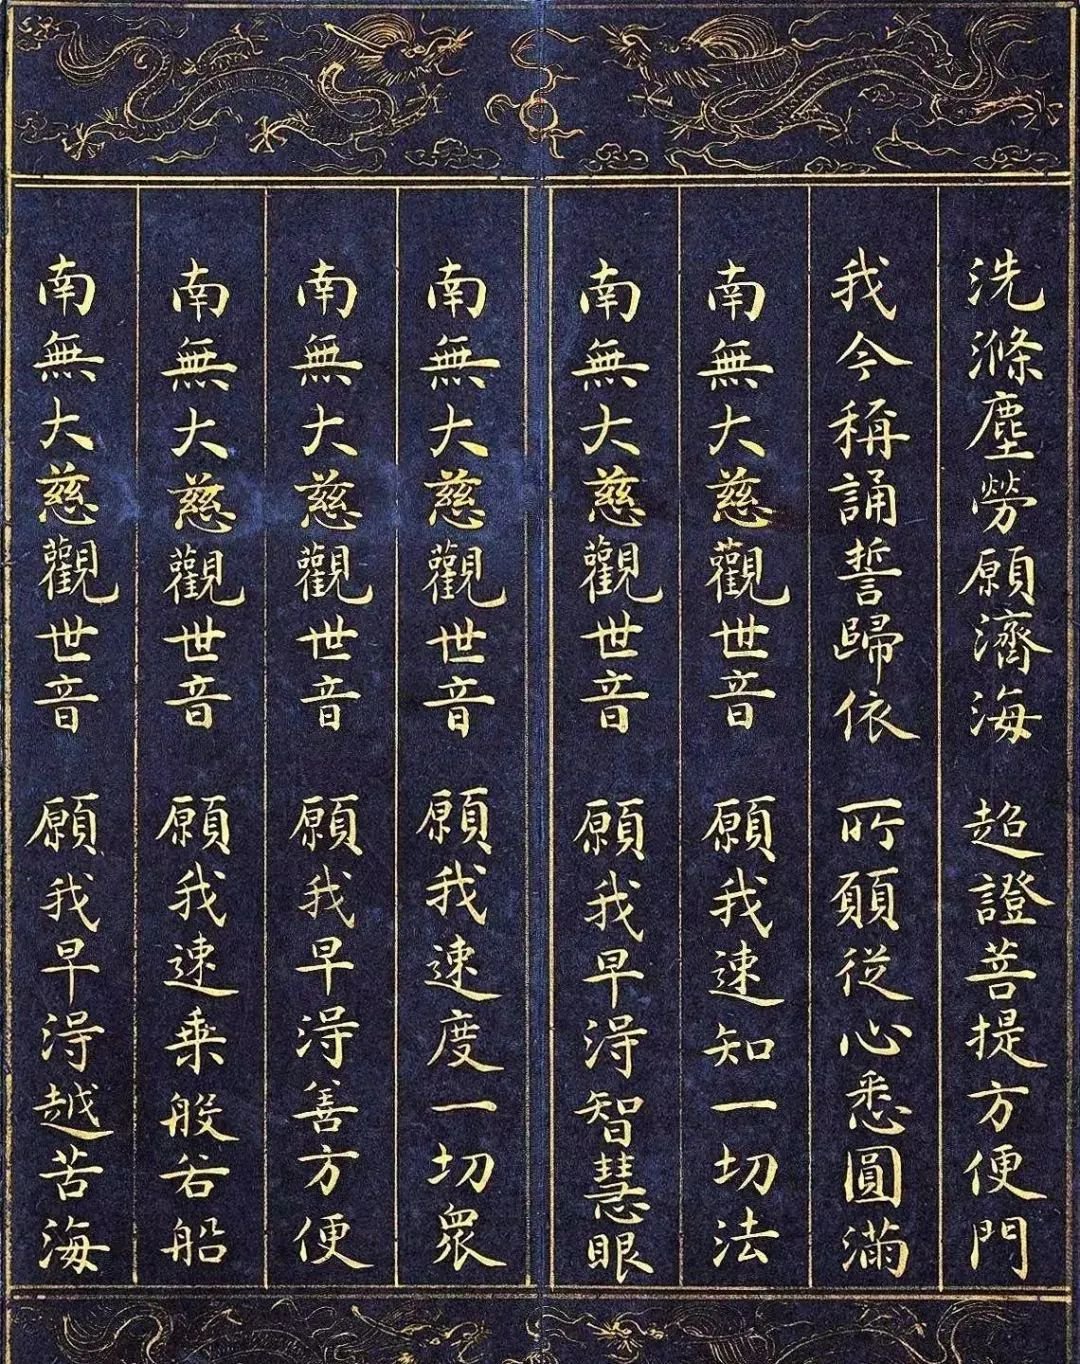 洗滌塵勞願濟海 超證菩提方便門
我今稱誦誓歸依 所願從心悉圓滿
南無大慈觀世音 願我速知一切法
南無大慈觀世音 願我早得智慧眼
南無大慈觀世音 願我速度一切眾
南無大慈觀世音 願我早得善方便
南無大慈觀世音 願我速乘般若船
南無大慈觀世音 願我早得越苦海